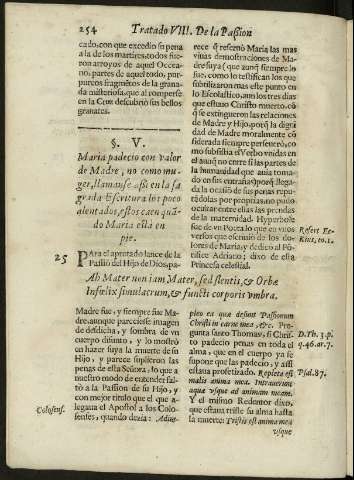 254
Tratado VIII. De la Passion
cado, con que excedio su pena
a la de los martires, todos fue-
ron arroyos de aquel Occea-
no, partes de aquel todo, pur-
pureos fragmẽtos de la grana-
da misteriosa, que al romperse
en la Cruz descubriò sus bellos
granates.
§. V.
Maria padecio con valor
de Madre, no como mu-
ger, llamanse assi en la sa
grada Escritura los poco
alentados, estos caen quã-
do Maria està en
pie.
25
Para el apretado lance de la
Passiõ del Hijo de Dios, pa-
rece q̃ reservò Maria las mas
vivas demostraciones de Ma-
dre suya (que aunq̃ siempre lo
fue, como lo testifican los que
sutilizaron mas este punto en
lo Escolastico, aun los tres dias
que estuvo Christo muerto, cõ
q̃ se extinguieron las relaciones
de Madre y Hijo, porq̃ la digni
dad de Madre moralmente cõ
siderada siempre perseverò, co
mo subsistia el Verbo unidas en
el aunq̃ no entre si las partes de
la humanidad que avia toma-
do en sus entrañas) porq̃ llega-
da la ocasiõ de sus penas repu-
tãdolas por propias, no pudo
ocultar entre ellas las prendas
de la maternidad. Hyperbole
fue de un Poeta lo que en unos
versos que escriviò de los do-
lores de Maria, y dedicò al Põ-
tifice Adriano; dixo de esta
Princesa celestial.
Refert Ec-
Kius, to. 1.
Ah Mater non iam Mater, sed flentis, & Orbæ
Infælix simulacrum, & functi corporis umbra.
Madre fue, y siempre fue Ma-
dre, aunque pareciesse imagen
de desdicha, y sombra de un
cuerpo difunto, y lo mostrò
en hazer suya la muerte de su
hijo, y parece supieron las
penas de esta Señora, lo que a
nuestro modo de entender fal-
tò a la Passion de su Hijo, y
con mejor titulo que el que a-
legava el Apostol a los Colo-
senses, quando dezia: Adim-
Colosens.
pleo ea quæ desunt Passionum
Christi in carne mea, &c. Pre-
gunta santo Thomas, si Chris-
to padeciò penas en toda el
alma, que en el cuerpo ya se
supone que las padeciò, y assi
estava profetizado. Repleta est
malis anima mea. Intraverunt
aquæ usque ad animam meam.
Y el mismo Redentor dixo,
que estava triste su alma hasta
la muerte: Tristis est anima mea
usque
D. Th. 3. p.
q. 46. ar. 7.
Psal. 87.